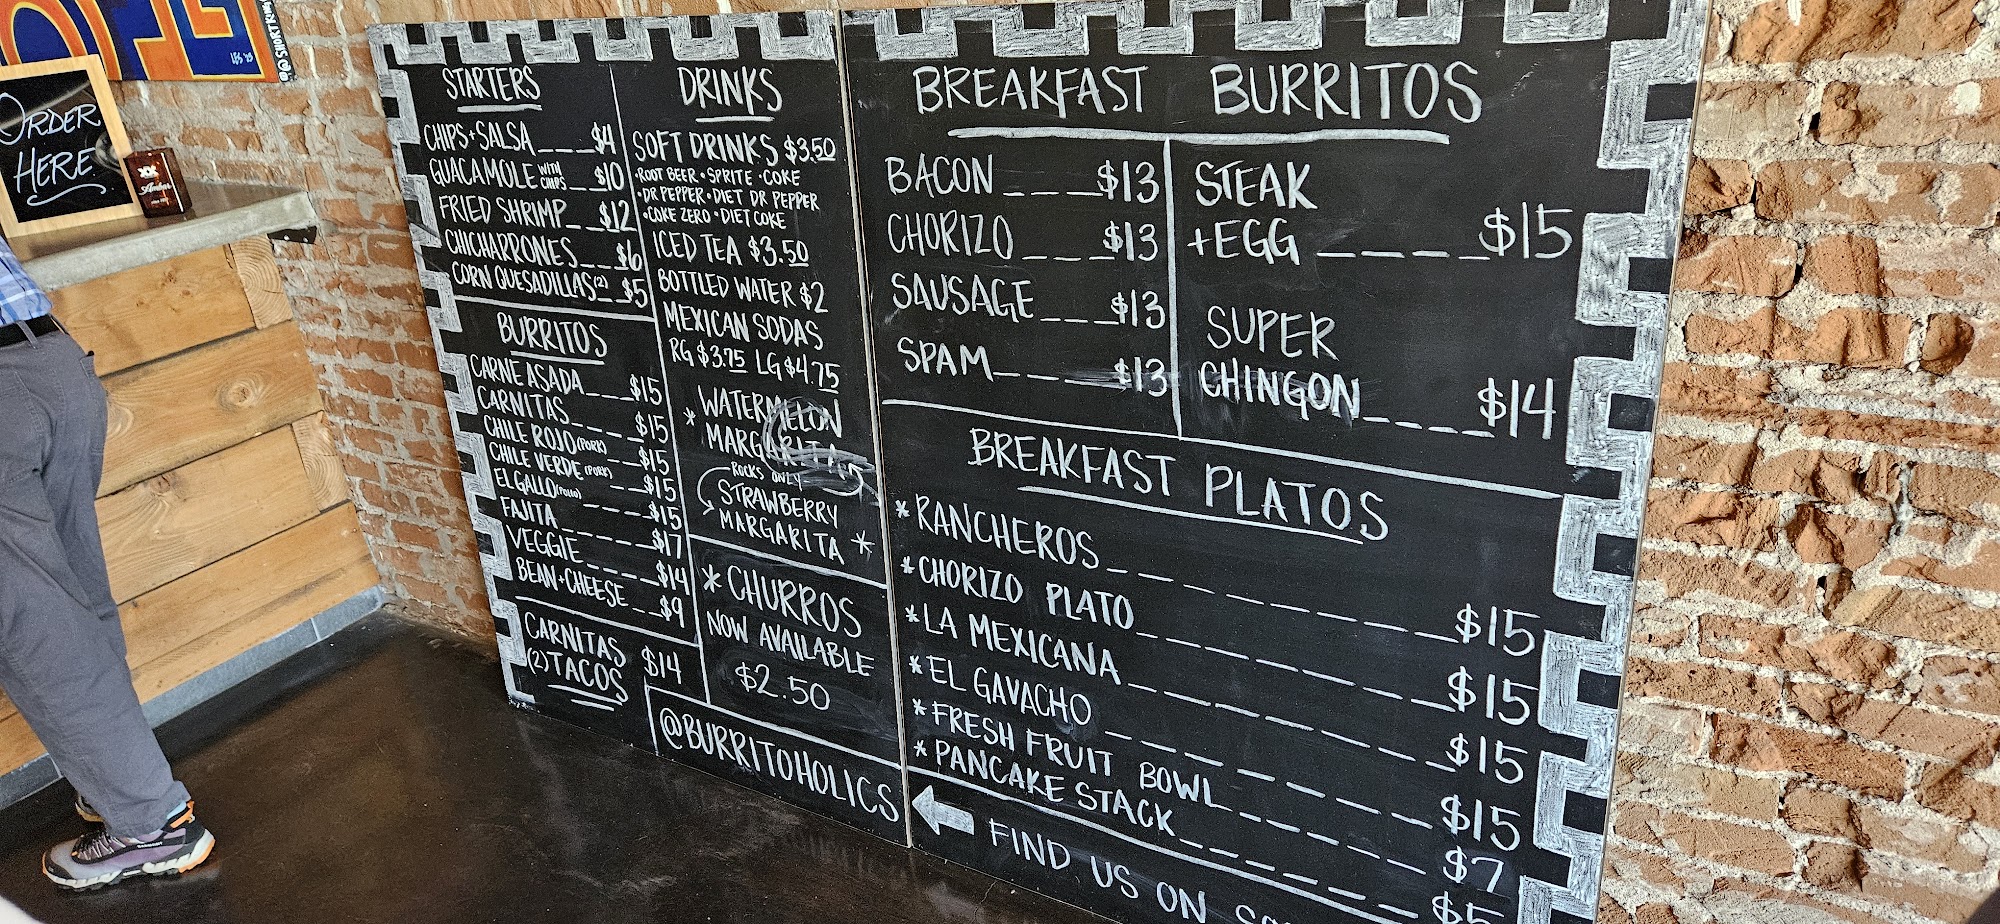 @SHORTRUN
LBS '23
ORDER
HERE
XX
Amber
STARTERS
CHIPS+SALSA___$4
GUACAMOLE WITH CHIPS __$10
FRIED SHRIMP__$12
CHICHARRONES___$6
CORN QUESADILLAS(2)_$5
BURRITOS
CARNE ASADA___$15
CARNITAS____$15
CHILE ROJO(PORK)__$15
CHILE VERDE(PORK)__$15
EL GALLO(POLLO)____$15
FAJITA______$17
VEGGIE_____$14
BEAN+CHEESE__$9
CARNITAS
(2)TACOS $14
DRINKS
SOFT DRINKS $3.50
•ROOT BEER•SPRITE•COKE
•DR PEPPER•DIET DR PEPPER
•COKE ZERO•DIET COKE
ICED TEA $3.50
BOTTLED WATER $2
MEXICAN SODAS
RG $3.75 LG $4.75
* WATERMELON
MARGARITAS
ROCKS ONLY
STRAWBERRY
MARGARITA *
* CHURROS
NOW AVAILABLE
$2.50
@BURRITOHOLICS
BREAKFAST BURRITOS
BACON____$13
CHORIZO___$13
SAUSAGE___$13
SPAM____$13
STEAK
+EGG _____$15
SUPER
CHINGON____$14
BREAKFAST PLATOS
*RANCHEROS_________$15
*CHORIZO PLATO________$15
*LA MEXICANA________$15
*EL GAVACHO_________$15
*FRESH FRUIT BOWL______$7
*PANCAKE STACK_______$5
FIND US ON